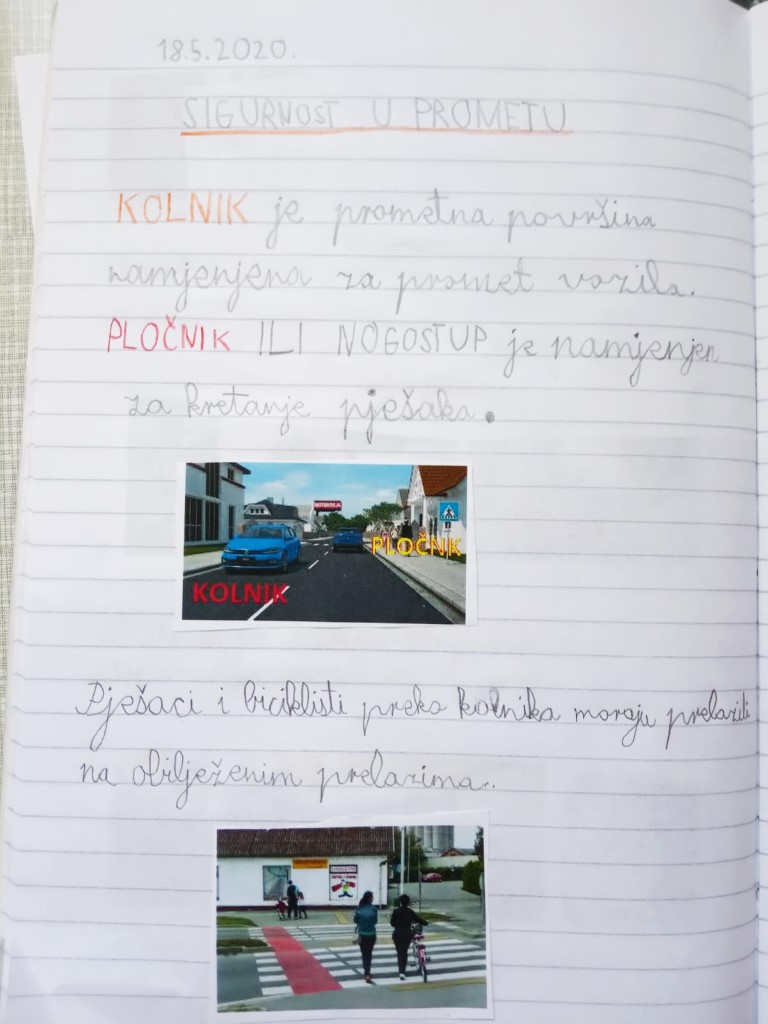 18.5.2020.
SIGURNOST U PROMETU
KOLNIK je prometna površina
namjenjena za promet vozila.
PLOČNIK ILI NOGOSTUP je namjenjen
za kretanje pješaka.
PLOČNIK
KOLNIK
Pješaci i biciklisti preko kolnika moraju prelaziti
na obilježenim prelazima.